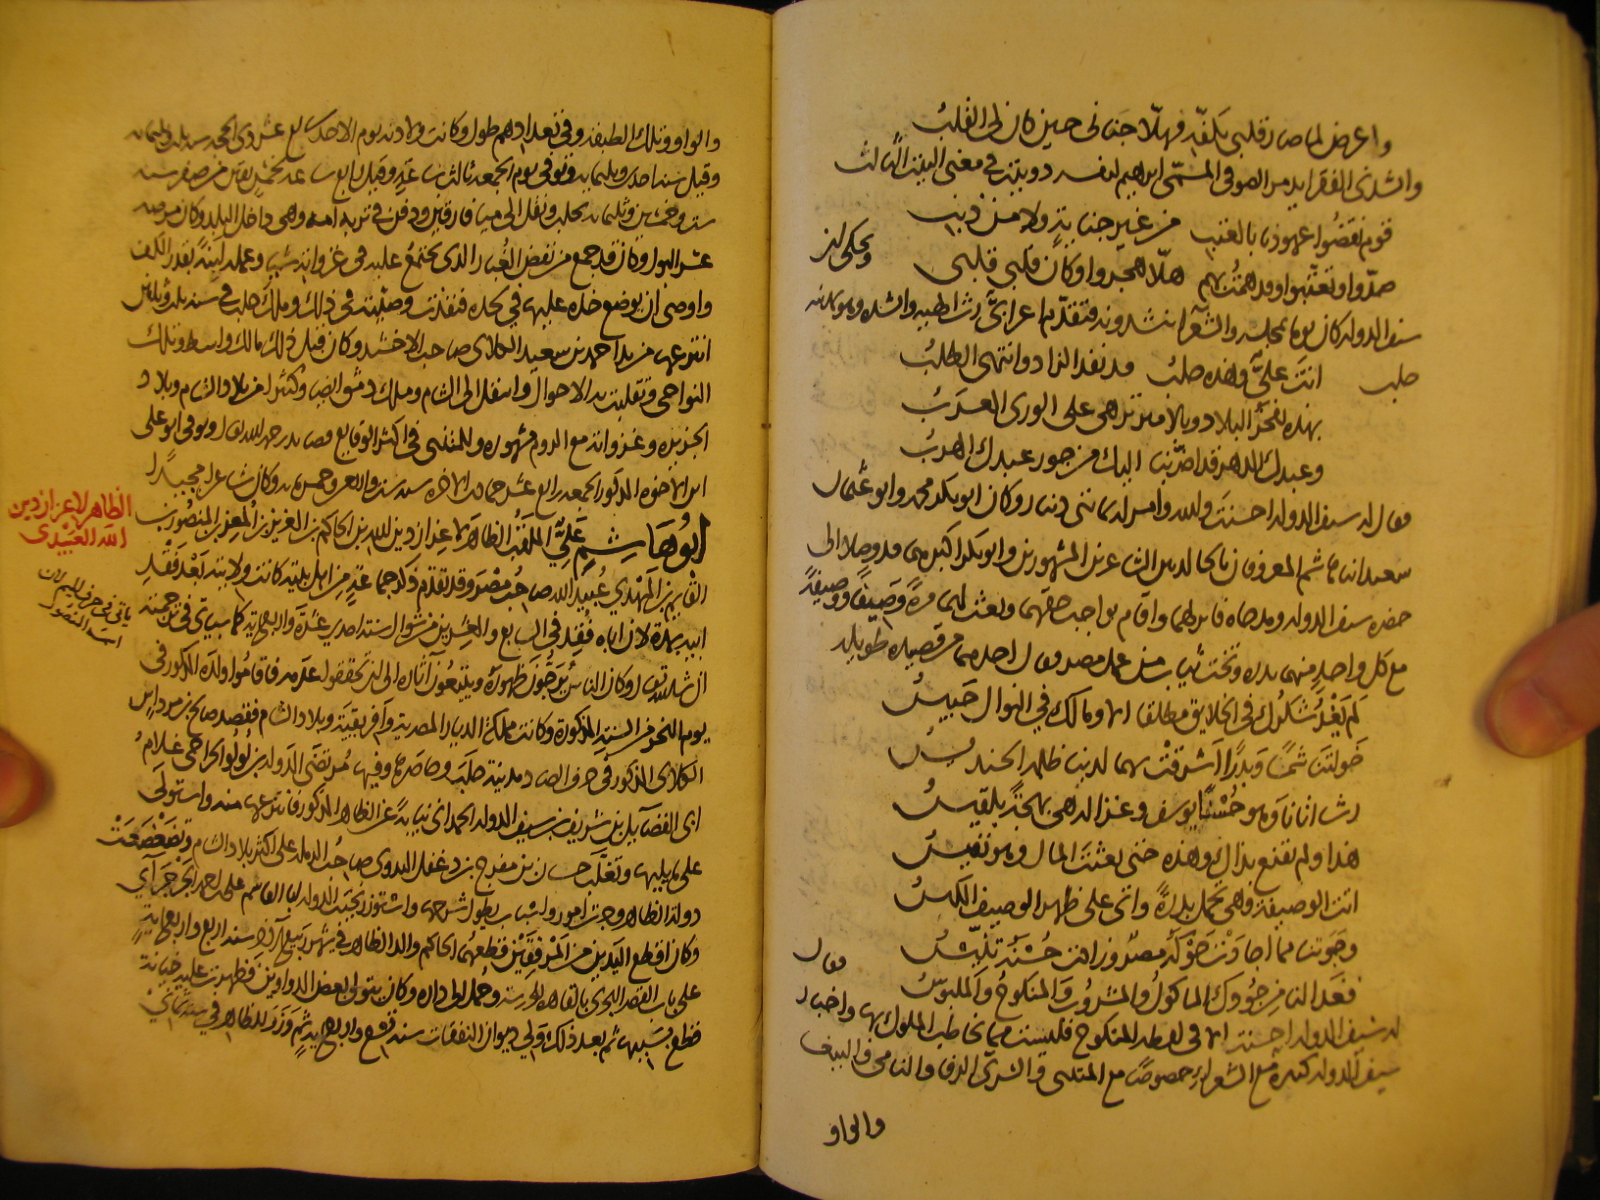 واعرض لما صار قلبي بكفه فهلا جفاني حين كان لي القلب
وانشدني الفقيه ايدمر الصوفي المسمى ابراهيم لنفسه دوبيت في معنى البيت الثالث
قوم نقضوا عهودنا بالعتب من غير جناية ولا من ذنب
صدوا وتعتبوا وقد همت بهم هلا هجروا وكان قلبي قلبي ويحكى ان
سيف الدولة كان يوما بمجلسه والشعراء ينشدونه فتقدم اعرابي رث الهيئة وانشده وهو بمدينة
حلب انت علي وهذه حلب قد نفد الزاد وانتهى الطلب
بهذه تفخر البلاد وبالامير تزهى على الورى العرب
وعبدك الدهر قد اضر بنا اليك من جور عبدك الهرب
فقال له سيف الدولة احسنت ولله وامر له بمائتي دينار وكان ابو بكر محمد وابو عثمان
سعيد ابنا هاشم المعروفان بالخالديين الشاعرين المشهورين وابو بكر اكبرهما قد وصلا الى
حضرة سيف الدولة ومدحاه فانزلهما واقام بواجب حقهما وبعث لهما مرة وصيفا ووصيفة
مع كل واحد منهما بدرة وتخت ثياب من عمل مصر فقال احدهما من قصيدة طويلة
لم يغد شكرك في الخلائق مطلقا الا ومالك في النوال حبيس
خولتنا شمسا وبدرا اشرقت بهما لدينا ظلمة الحنديس
رشا اتانا وهو حسنا يوسف وغزالة هي بهجة بلقيس
هذا ولم تقنع بذاك وهذه حتى بعثت المال وهو نفيس
اتت الوصيفة وهي تحمل بدرة واتى على ظهر الوصيف الكيس
وحبوتنا مما اجادت حوكه مصر وزادت حسنه تنيس
فغدا لنا من جودك الماكول والمشروب والمنكوح والملبوس فقال
له سيف الدولة احسنت الا في لفظة المنكوح فليست مما يخاطب الملوك بها واخبار
سيف الدولة كثيرة مع الشعراء خصوصا مع المتنبي والسري الرفا والنامي والببغا
والواو
والواوا وتلك الطبقة وفي تعدادهم طول وكانت ولادته يوم الاحد سابع عشر ذي الحجة سنة ثلث وثلثمائة
وقيل سنة احدى وثلثمائة وتوفي يوم الجمعة ثالث ساعة وقيل رابع ساعة لخمس بقين من صفر سنة
ست وخمسين وثلثمائة بحلب ونقل الى ميافارقين ودفن في تربة امه وهي داخل البلد وكان مرضه
عسر البول وكان قد جمع من نفض الغبار الذي يجتمع عليه في غزواته شيا وعمله لبنة بقدر الكف
واوصى ان يوضع خده عليها في لحده فنفذت وصيته في ذلك وملك حلب في سنة ثلث وثلثين
انتزعها من يد احمد بن سعيد الكلابي صاحب الاخشيد وكان قبل ذلك مالك واسط وتلك
النواحي وتقلبت به الاحوال وانتقل الى الشام وملك دمشق ايضا وكثيرا من بلاد الشام وبلاد
الجزيرة وغزواته مع الروم مشهورة وللمتنبي في اكثر الوقايع قصائد رحمه الله تعالى وتوفي ابو علي
ابن الاخوة المذكور الجمعة رابع عشر جمادى الاخرة سنة ست واربعين وخمسمائة وكان شاعرا مجيدا
ابو هاشم علي الملقب الظاهر لاعزاز دين الله بن الحاكم بن العزيز بن المعز بن المنصور بن
القايم بن المهدي عبيد الله صاحب مصر وقد تقدم ذكر جماعة من اهل بيته كانت ولايته بعد فقد
ابيه بمدة لان اباه فقد في السابع والعشرين من شوال سنة احدى عشرة واربعمائة كما سياتي في ترجمته
ان شاء الله تعالى وكان الناس يرجون ظهوره ويتبعون اثاره الى ان تحققوا عدمه فاقاموا ولده المذكور في
يوم النحر من السنة المذكورة وكانت مملكة الديار المصرية وافريقية وبلاد الشام فقصد صالح بن مرداس
الكلابي المذكور في حرف الصاد مدينة حلب وحاصرها وفيها مرتضى الدولة بن لولو الجراحي غلام
ابي الفضايل بن شريف بن سيف الدولة الحمداني نيابة عن الظاهر المذكور فانتزعها منه واستولى
على ما يليها وتغلب حسان بن مفرج بن دغفل البدوي صاحب الرملة على اكثر بلاد الشام وتضعضعت
دولة الظاهر وجرت امور واسباب يطول شرحها واستوزر نجيب الدولة ابا القاسم علي بن احمد الجرجراي
وكان اقطع اليدين من المرفقين قطعهما الحاكم والد الظاهر في شهر ربيع الاخر سنة اربع واربعمائة
على باب القصر البحري بالقاهرة المحروسة وحمل الى داره وكان يتولى بعض الدواوين فظهرت عليه خيانة
فقطع بسببها ثم بعد ذلك ولي ديوان النفقات سنة تسع واربعمائة ثم وزر للظاهر في سنة ثماني
الظاهر لاعزاز دين
الله العبيدي
ياتي في حرف الميم لان
اسمه المنصور